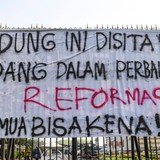 DUNG INI DISITA
DANG DALAM PERBA
REFORMAS
MUA BISA KENA